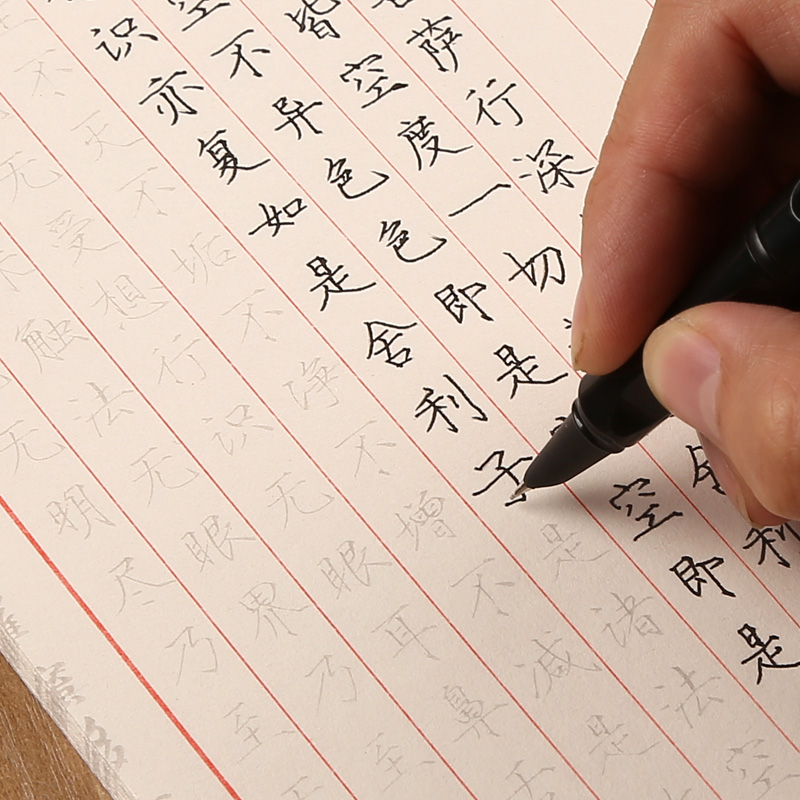 萨行深
皆空度一切舍利
空不异色色即是空即是
识亦复如是舍利子是诸法空
不灭不垢不净不增不减是
无受想行识无眼耳鼻舌
触法无眼界乃至
无明尽乃至